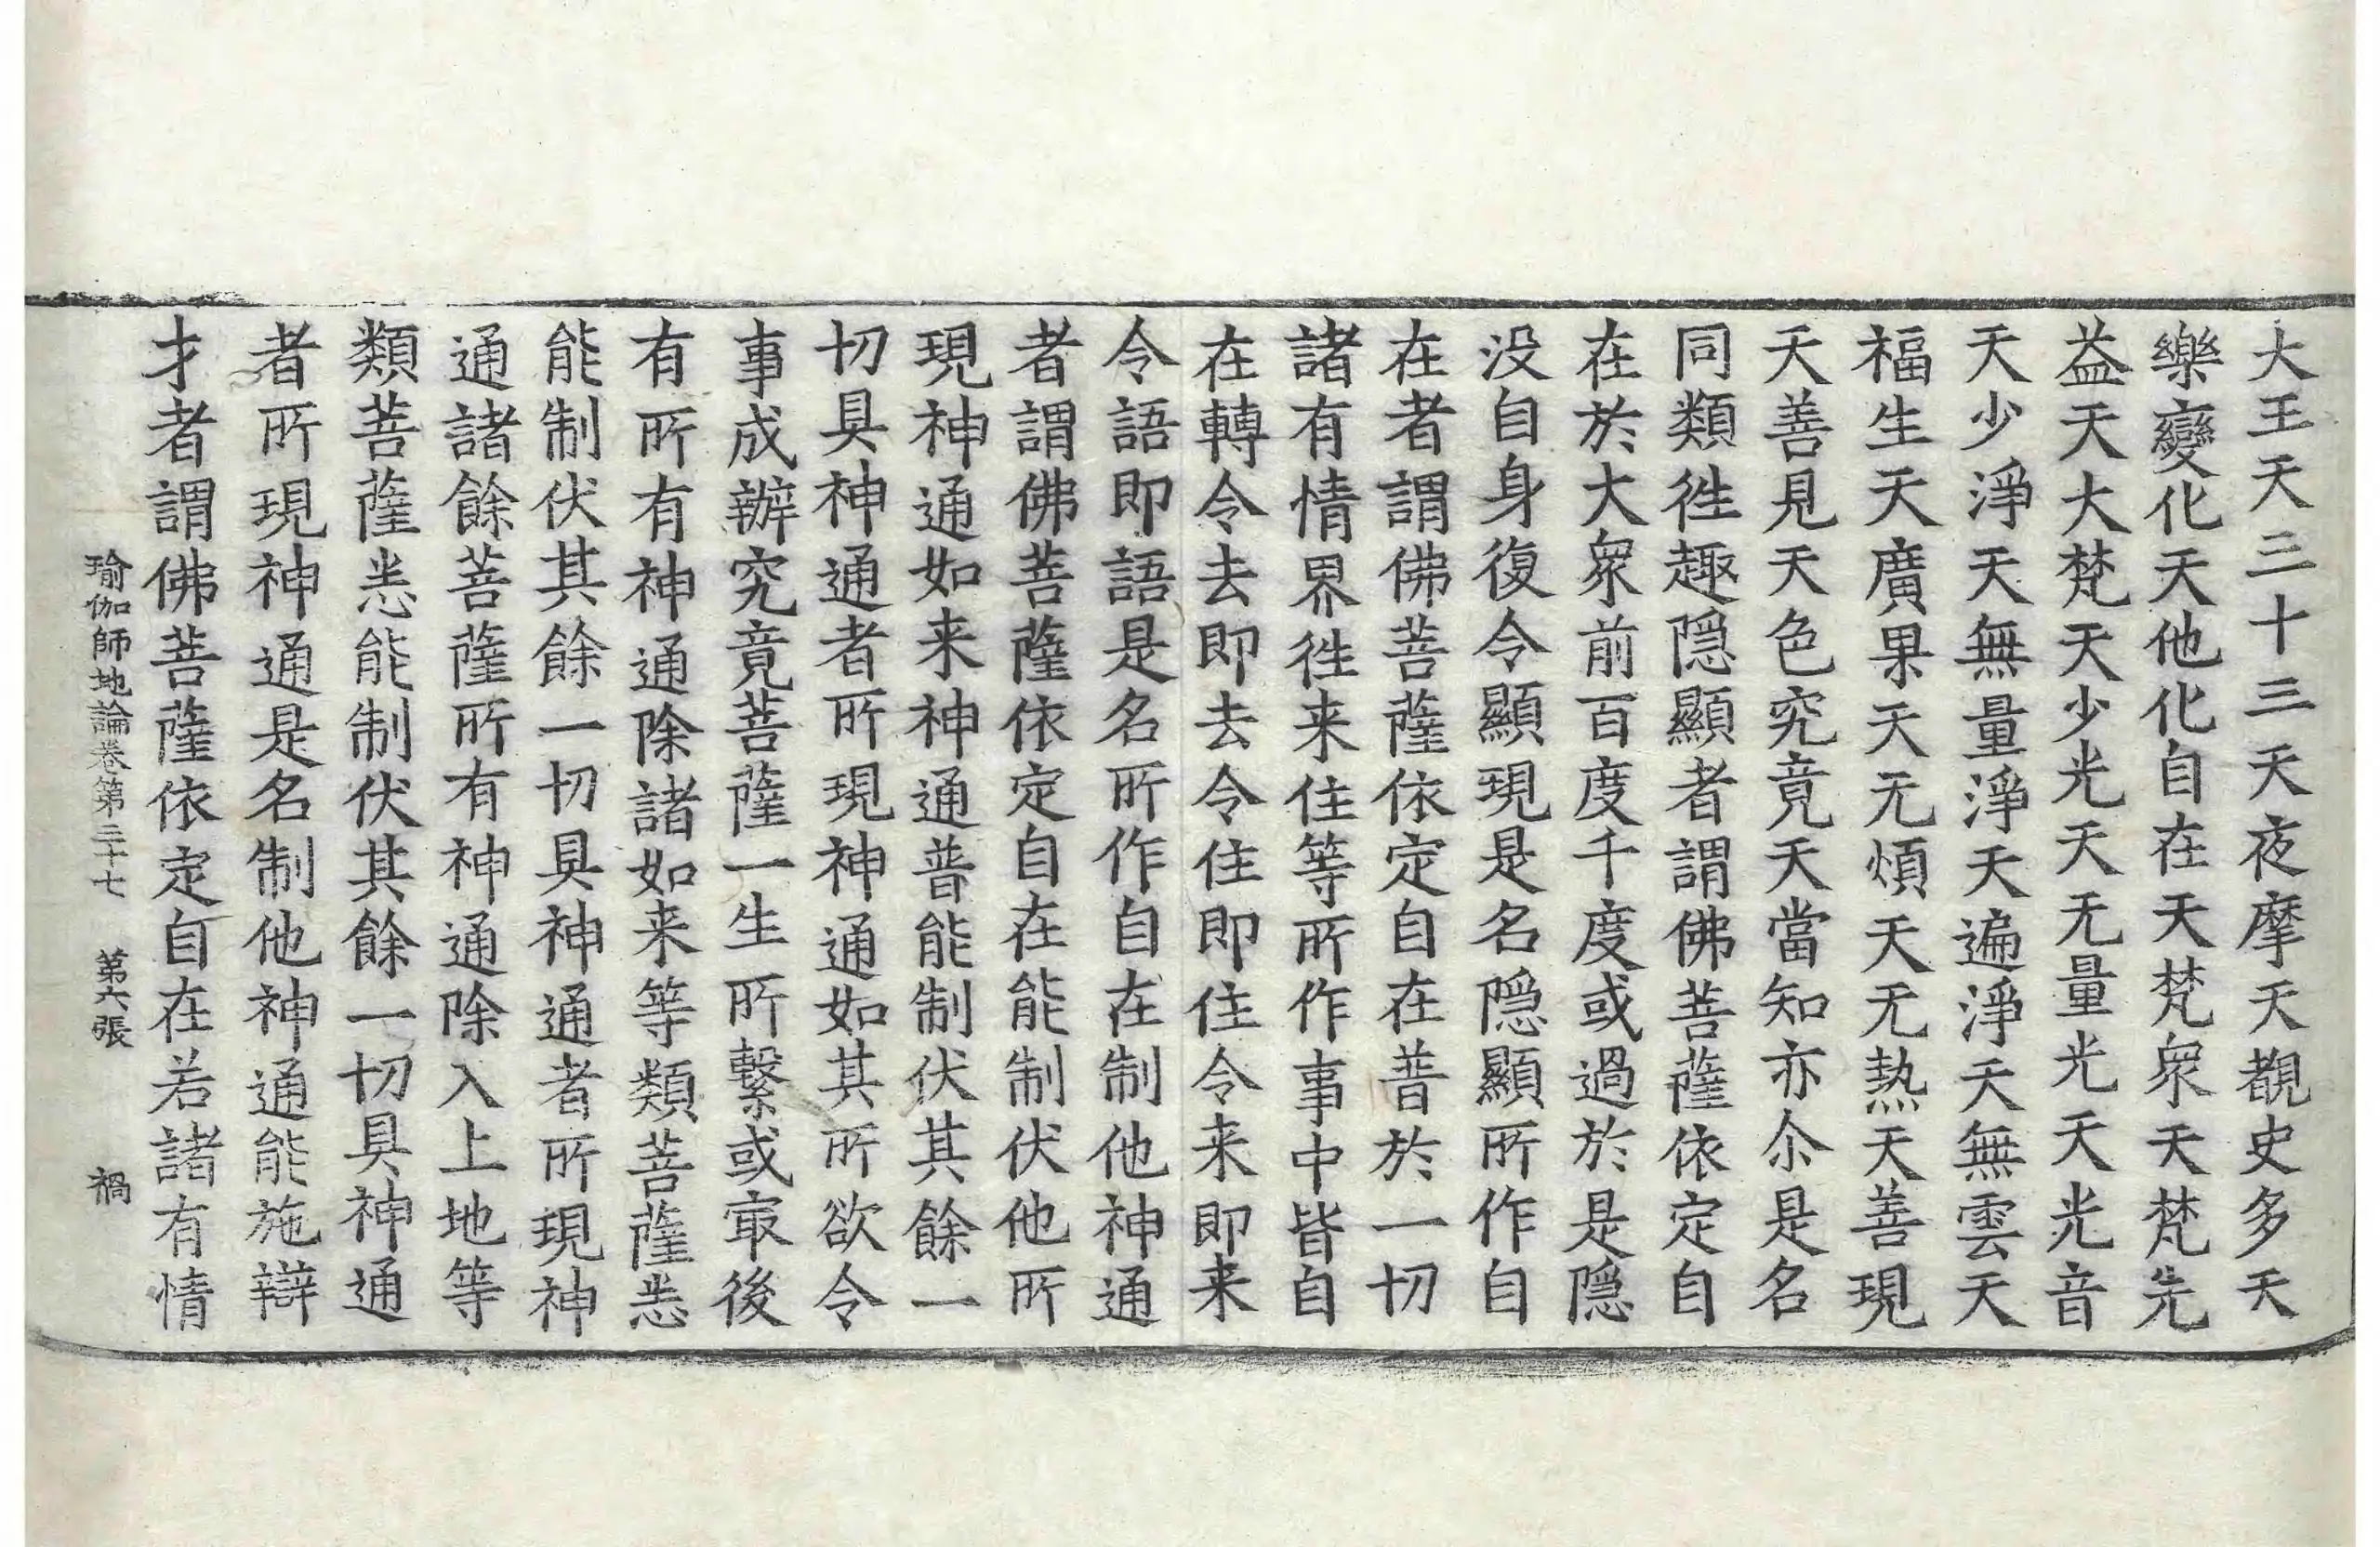 大王天三十三天夜摩天覩史多天
樂變化天他化自在天梵衆天梵先
益天大梵天少光天无量光天光音
天少淨天無量淨天遍淨天無雲天
福生天廣果天无煩天无熱天善現
天善見天色究竟天當知亦尒是名
同類徃趣隱顯者謂佛菩薩依定自
在於大衆前百度千度或過於是隱
没自身復令顯現是名隱顯所作自
在者謂佛菩薩依定自在普於一切
諸有情界徃来住等所作事中皆自
在轉令去即去令住即住令来即来
令語即語是名所作自在制他神通
者謂佛菩薩依定自在能制伏他所
現神通如来神通普能制伏其餘一
切具神通者所現神通如其所欲令
事成辦究竟菩薩一生所繫或㝡後
有所有神通除諸如来等類菩薩悉
能制伏其餘一切具神通者所現神
通諸餘菩薩所有神通除入上地等
類菩薩悉能制伏其餘一切具神通
者所現神通是名制他神通能施辯
才者謂佛菩薩依定自在若諸有情
瑜伽師地論卷第三十七 第六張 禍